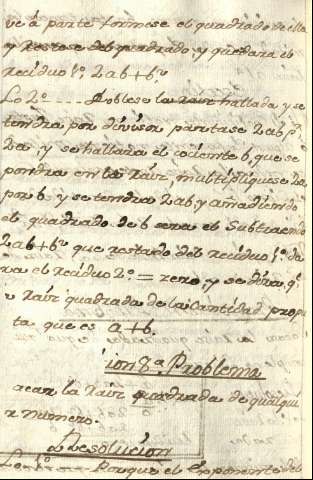 ve á parte formese el quadrado de ella
y restese del quadrado, y quedara el
reciduo 1º 2ab+b²
Lo 2º .... Doblese la raiz hallada, y se
tendra por divisor, partase 2ab pr
2a, y se hallara el cociente b, que se
pondra en la raiz, multipliquese 2a,
por b, y se tendra 2ab, y añadiendo
el quadrado de b sera el Substraendo
2ab+b² que restado del reciduo 1º da
ra el reciduo 2º = zero, y se dira, qe
raiz quadrada de la Cantidad propu
ta que es a+b.
ion 8ª Problema
acar la raiz quadrada de qualqui
r numero.
Resolucion
Lo 1º Porque el Exponente del